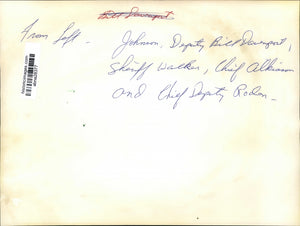 Bill Davenport
From Left - Johnson, Deputy Bill Davenport,
Sheriff Walker, Chief Atkinson
and Chief Deputy Roden -